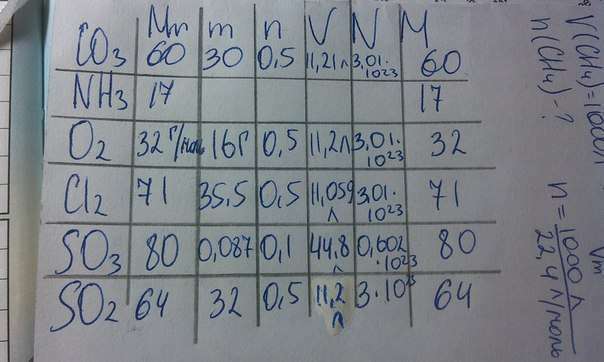 Mm m n V N M
CO3 60 30 0,5 11,21л 3,01·10²³ 60
NH3 17 17
O2 32 г/моль 16г 0,5 11,2л 3,01·10²³ 32
Cl2 71 35.5 0,5 11,059л 3,01·10²³ 71
SO3 80 0,087 0,1 44,8л 0,602·10²³ 80
SO2 64 32 0,5 11,2л 64
V(CH4)=1000л
n(CH4)-?
Vm
n = 1000 л
22,4 л/моль